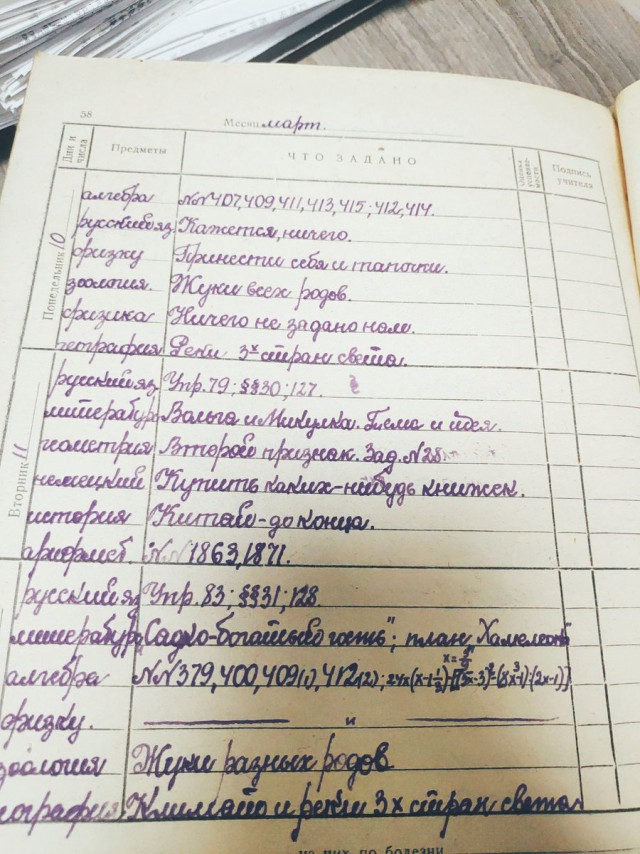 38
Месяц март.
Дни и числа Предметы ЧТО ЗАДАНО Оценка успеваемости Подпись учителя
Понедельник 10
алгебра №№407,409,411,413,415; 412,414.
русский яз Кажется, ничего.
физку Принести себя и тапочки.
зоология. Жуки всех родов.
физика Ничего не задано нам.
география Реки 3х стран света.
Вторник 11
русский яз Упр. 79; §§30; 127.
литератур Вольга и Микулка. Тема и идея.
геометрия Второй признак. Зад. №28.
немецкий Купить каких-нибудь книжек.
история Китай-до конца.
арифмет. №№1863,1871.
русский яз Упр. 83; §§31; 128.
литератур "Садко-богатый гость"; план "Хамелеон"
алгебра №№379,400,409(1),412(2);
физку. и
зоология Жуки разных родов
география Климат и реки 3х стран света
из них по болезни